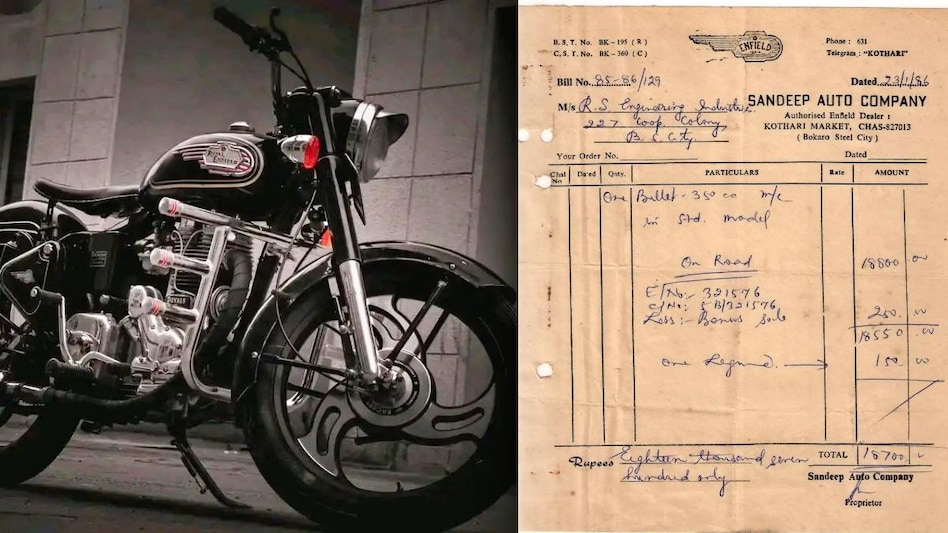 ROYAL
ENFIELD
B.S.T. No. BK-195 (R)
C.S.T. No. BK-360 (C)
ENFIELD
Phone : 631
Telegram : "KOTHARI"
Bill No. 85-86/129
Dated 23/1/86
M/s R.S. Engineering Industries
227 Coop. Colony
B.S. City
SANDEEP AUTO COMPANY
Authorised Enfield Dealer :
KOTHARI MARKET, CHAS-827013
( Bokaro Steel City )
Your Order No.
Dated
Chal No Dated Qnty. PARTICULARS Rate AMOUNT
One Bullet. 350 cc m/c
in Std. model
On Road 18800.00
E/No:- 321576
C/No:- 5B/321576
Less:- Bonus 250.00
18550.00
One 150.00
Rupees Eighteen thousand seven TOTAL 18700
hundred only
Sandeep Auto Company
Proprietor